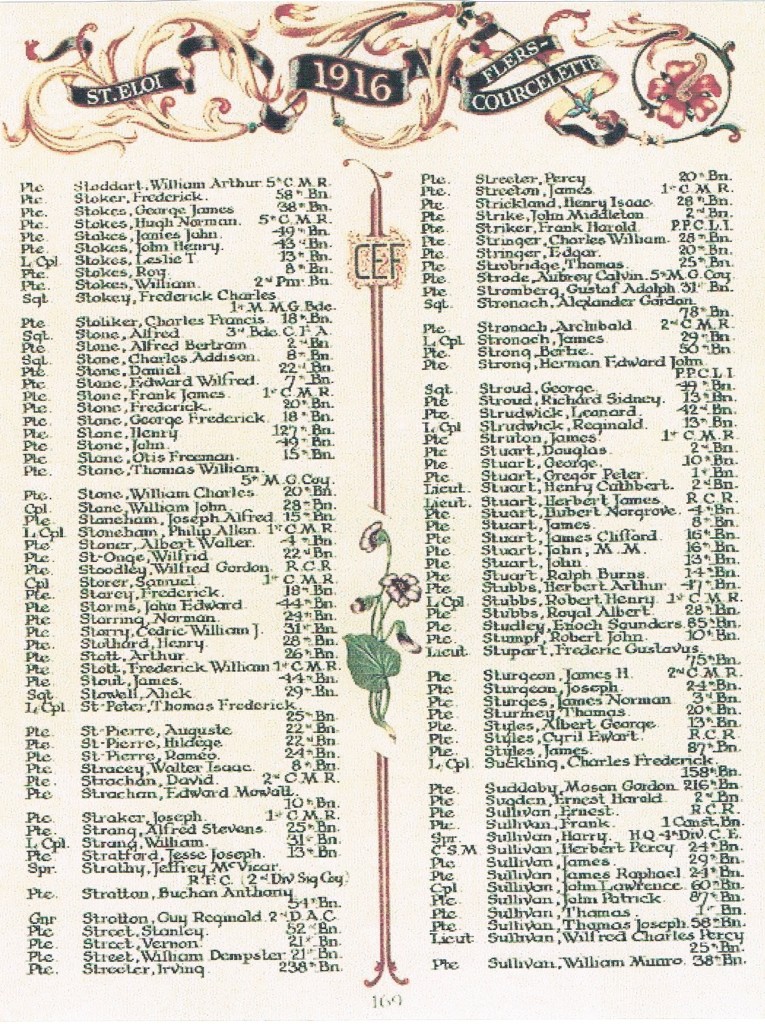 ST. ELOI
1916
FLERS-
COURCELETTE
CEF
Pte. Stoddart, William Arthur 5th C.M.R.
Pte. Stoker, Frederick. 58th Bn.
Pte. Stokes, George James 38th Bn.
Pte. Stokes, Hugh Norman. 5th C.M.R.
Pte. Stokes, James John. 49th Bn.
Pte. Stokes, John Henry. 43rd Bn.
L.Cpl. Stokes, Leslie T. 13th Bn.
Pte. Stokes, Roy. 8th Bn.
Pte. Stokes, William. 2nd Pnr. Bn.
Sgt. Stokey, Frederick Charles
1st M.M.G. Bde.
Pte. Stoliker, Charles Francis. 18th Bn.
Sgt. Stone, Alfred 3rd Bde. C.F.A.
Pte. Stone, Alfred Bertram 2nd Bn.
Sgt. Stone, Charles Addison. 8th Bn.
Pte. Stone, Daniel 22nd Bn.
Pte. Stone, Edward Wilfred. 7th Bn.
Pte. Stone, Frank James 1st C.M.R.
Pte. Stone, Frederick. 20th Bn.
Pte. Stone, George Frederick. 18th Bn.
Pte. Stone, Henry 127th Bn.
Pte. Stone, John. 49th Bn.
Pte. Stone, Otis Freeman. 15th Bn.
Pte. Stone, Thomas William.
5th M.G. Coy.
Pte. Stone, William Charles. 20th Bn.
Cpl. Stone, William John 28th Bn.
Pte. Stoneham, Joseph Alfred 15th Bn.
L.Cpl. Stoneham, Philip Allen. 1st C.M.R.
Pte. Stoner, Albert Walter. 4th Bn.
Pte. St-Onge, Wilfrid 22nd Bn.
Pte. Stoodley, Wilfred Gordon. R.C.R.
Cpl. Storer, Samuel 1st C.M.R.
Pte. Storey, Frederick. 18th Bn.
Pte. Storms, John Edward 44th Bn.
Pte. Storring, Norman. 24th Bn.
Pte. Storry, Cedric William J. 31st Bn.
Pte. Stothard, Henry. 28th Bn.
Pte. Stott, Arthur. 26th Bn.
Pte. Stott, Frederick William 1st C.M.R.
Pte. Stout, James. 44th Bn.
Sgt. Stowell, Alick 29th Bn.
L.Cpl. St-Peter, Thomas Frederick.
25th Bn.
Pte. St-Pierre, Auguste 22nd Bn.
Pte. St-Pierre, Hildège 22nd Bn.
Pte. St-Pierre, Roméo. 24th Bn.
Pte. Stracey, Walter Isaac. 8th Bn.
Pte. Strachan, David. 2nd C.M.R.
Pte. Strachan, Edward Mowatt.
10th Bn.
Pte. Straker, Joseph. 1st C.M.R.
Pte. Strang, Alfred Stevens. 25th Bn.
L.Cpl. Strang, William. 31st Bn.
Pte. Stratford, Jesse Joseph. 13th Bn.
Spr. Strathy, Jeffrey McVicar.
R.F.C. (2nd Div Sig Coy)
Pte. Stratton, Buchan Anthony.
54th Bn.
Gnr Stratton, Guy Reginald. 2nd D.A.C.
Pte. Street, Stanley. 52nd Bn.
Pte. Street, Vernon. 21st Bn.
Pte. Street, William Dempster 21st Bn.
Pte. Streeter, Irving. 238th Bn.
Pte. Streeter, Percy 20th Bn.
Pte. Streeton, James. 1st C.M.R.
Pte. Strickland, Henry Isaac. 28th Bn.
Pte. Strike, John Middleton. 2nd Bn.
Pte. Striker, Frank Harold P.P.C.L.I.
Pte. Stringer, Charles William. 28th Bn.
Pte. Stringer, Edgar. 20th Bn.
Pte. Strobridge, Thomas. 25th Bn.
Pte. Strode, Aubrey Calvin. 5th M.G. Coy.
Pte. Stromberg, Gustaf Adolph 31st Bn.
Sgt. Stronach, Alexander Gordon.
78th Bn.
Pte. Stronach, Archibald 2nd C.M.R.
L.Cpl. Stronach, James 29th Bn.
Pte. Strong, Bertie. 50th Bn.
Pte. Strong, Herman Edward John
P.P.C.L.I.
Sgt. Stroud, George. 49th Bn.
Pte. Stroud, Richard Sidney. 13th Bn.
Pte. Strudwick, Leonard. 42nd Bn.
L.Cpl Strudwick, Reginald. 13th Bn.
Pte. Struton, James. 1st C.M.R.
Pte. Stuart, Douglas. 2nd Bn.
Pte. Stuart, George. 10th Bn.
Pte. Stuart, Gregor Peter. 1st Bn.
Lieut. Stuart, Henry Cuthbert. 2nd Bn.
Lieut. Stuart, Herbert James R.C.R.
Pte. Stuart, Hubert Norgrove. 4th Bn.
Pte. Stuart, James. 8th Bn.
Pte. Stuart, James Clifford. 16th Bn.
Pte. Stuart, John, M.M. 16th Bn.
Pte. Stuart, John 13th Bn.
Pte. Stuart, Ralph Burns. 14th Bn.
Pte. Stubbs, Herbert Arthur 47th Bn.
L.Cpl. Stubbs, Robert Henry. 1st C.M.R.
Pte. Stubbs, Royal Albert. 28th Bn.
Pte. Studley, Enoch Saunders. 85th Bn.
Pte. Stumpf, Robert John. 10th Bn.
Lieut Stupart, Frederic Gustavus.
75th Bn.
Pte. Sturgeon, James H. 2nd C.M.R.
Pte. Sturgeon, Joseph. 24th Bn.
Pte. Sturges, James Norman 3rd Bn.
Pte. Sturmey, Thomas. 20th Bn.
Pte. Styles, Albert George. 13th Bn.
Pte. Styles, Cyril Ewart. R.C.R.
Pte. Styles, James. 87th Bn.
L.Cpl. Suckling, Charles Frederick.
158th Bn.
Pte. Suddaby, Mason Gordon 216th Bn.
Pte. Sugden, Ernest Harold 2nd Bn.
Pte. Sullivan, Ernest. R.C.R.
Pte. Sullivan, Frank. 1 Const. Bn.
Spr. Sullivan, Harry. H.Q. 4th Div. C.E.
C.S.M. Sullivan, Herbert Percy 24th Bn.
Pte. Sullivan, James. 29th Bn.
Pte. Sullivan, James Raphael. 24th Bn.
Cpl Sullivan, John Lawrence. 60th Bn.
Pte. Sullivan, John Patrick. 87th Bn.
Pte. Sullivan, Thomas. 1st Bn.
Pte. Sullivan, Thomas Joseph. 58th Bn.
Lieut Sullivan, Wilfred Charles Percy
25th Bn.
Pte Sullivan, William Munro. 38th Bn.
169